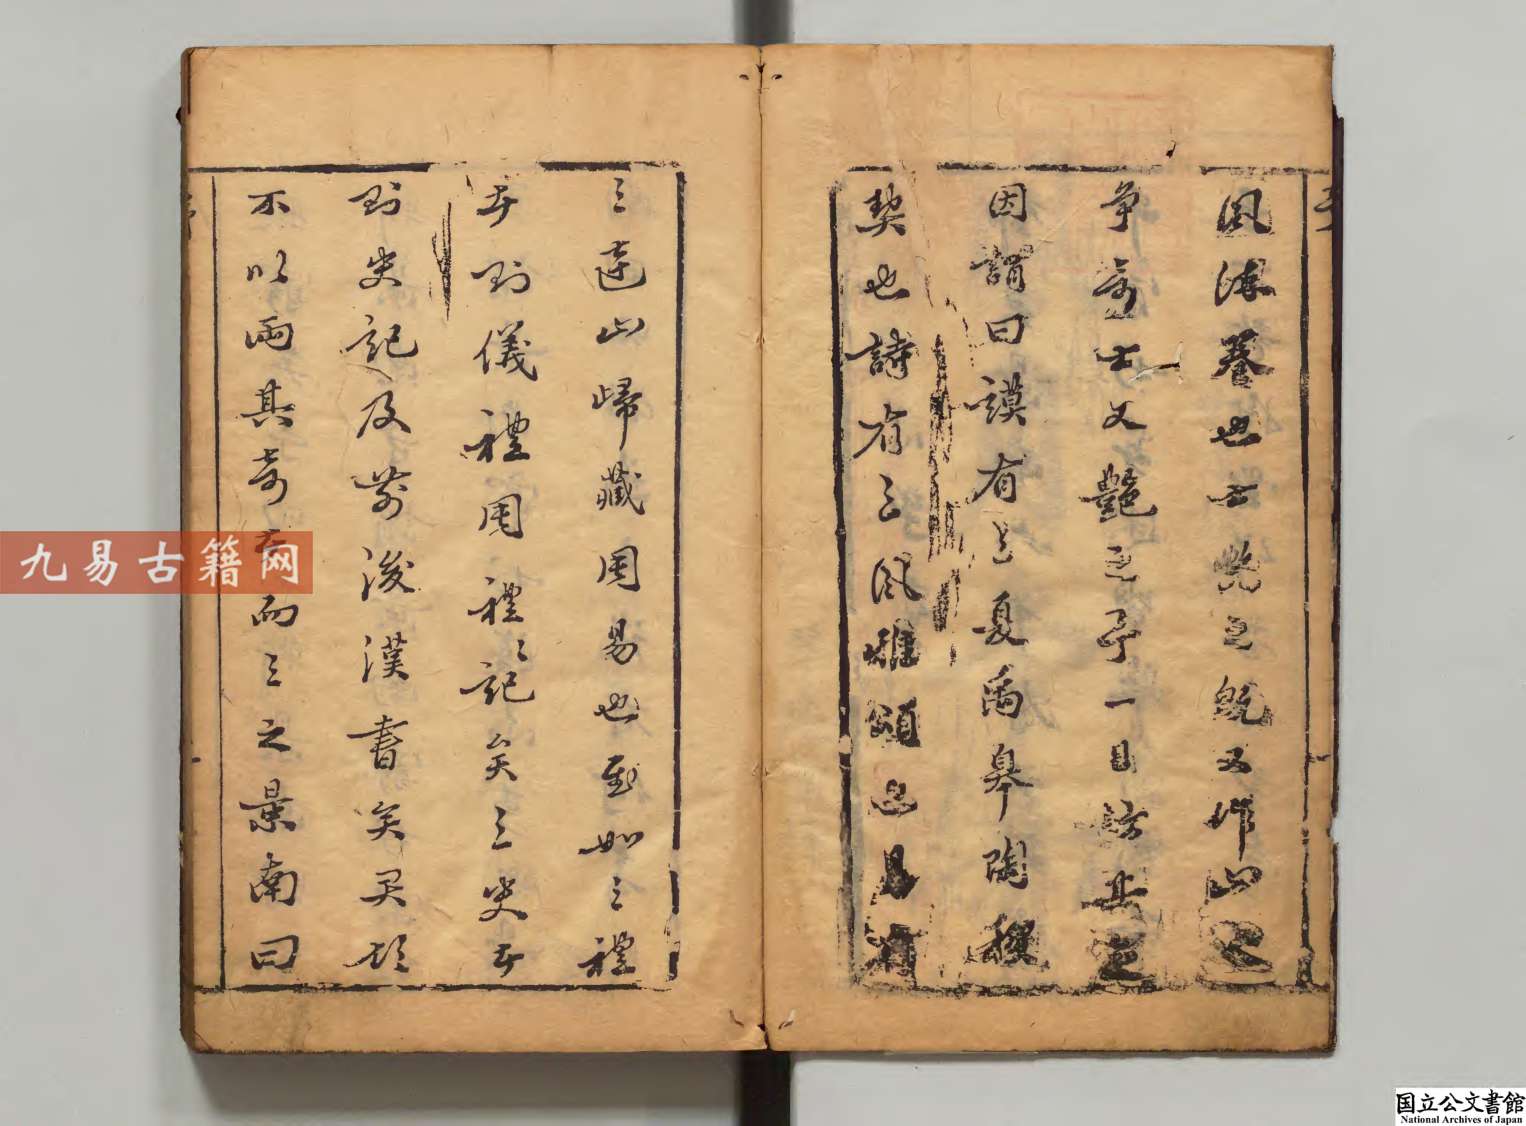 風沐養也士先之既又作山之
争奇士文艷之予一日訪其
因謂曰謨有三夏禹皋陶稷
契也詩有三風雅頌也易有
三連山歸藏周易也至如三禮
則儀禮周禮禮記矣三史
則史記及前後漢書矣
不以兩其奇而三之景南曰
九易古籍网
国立公文書館
National Archives of Japan